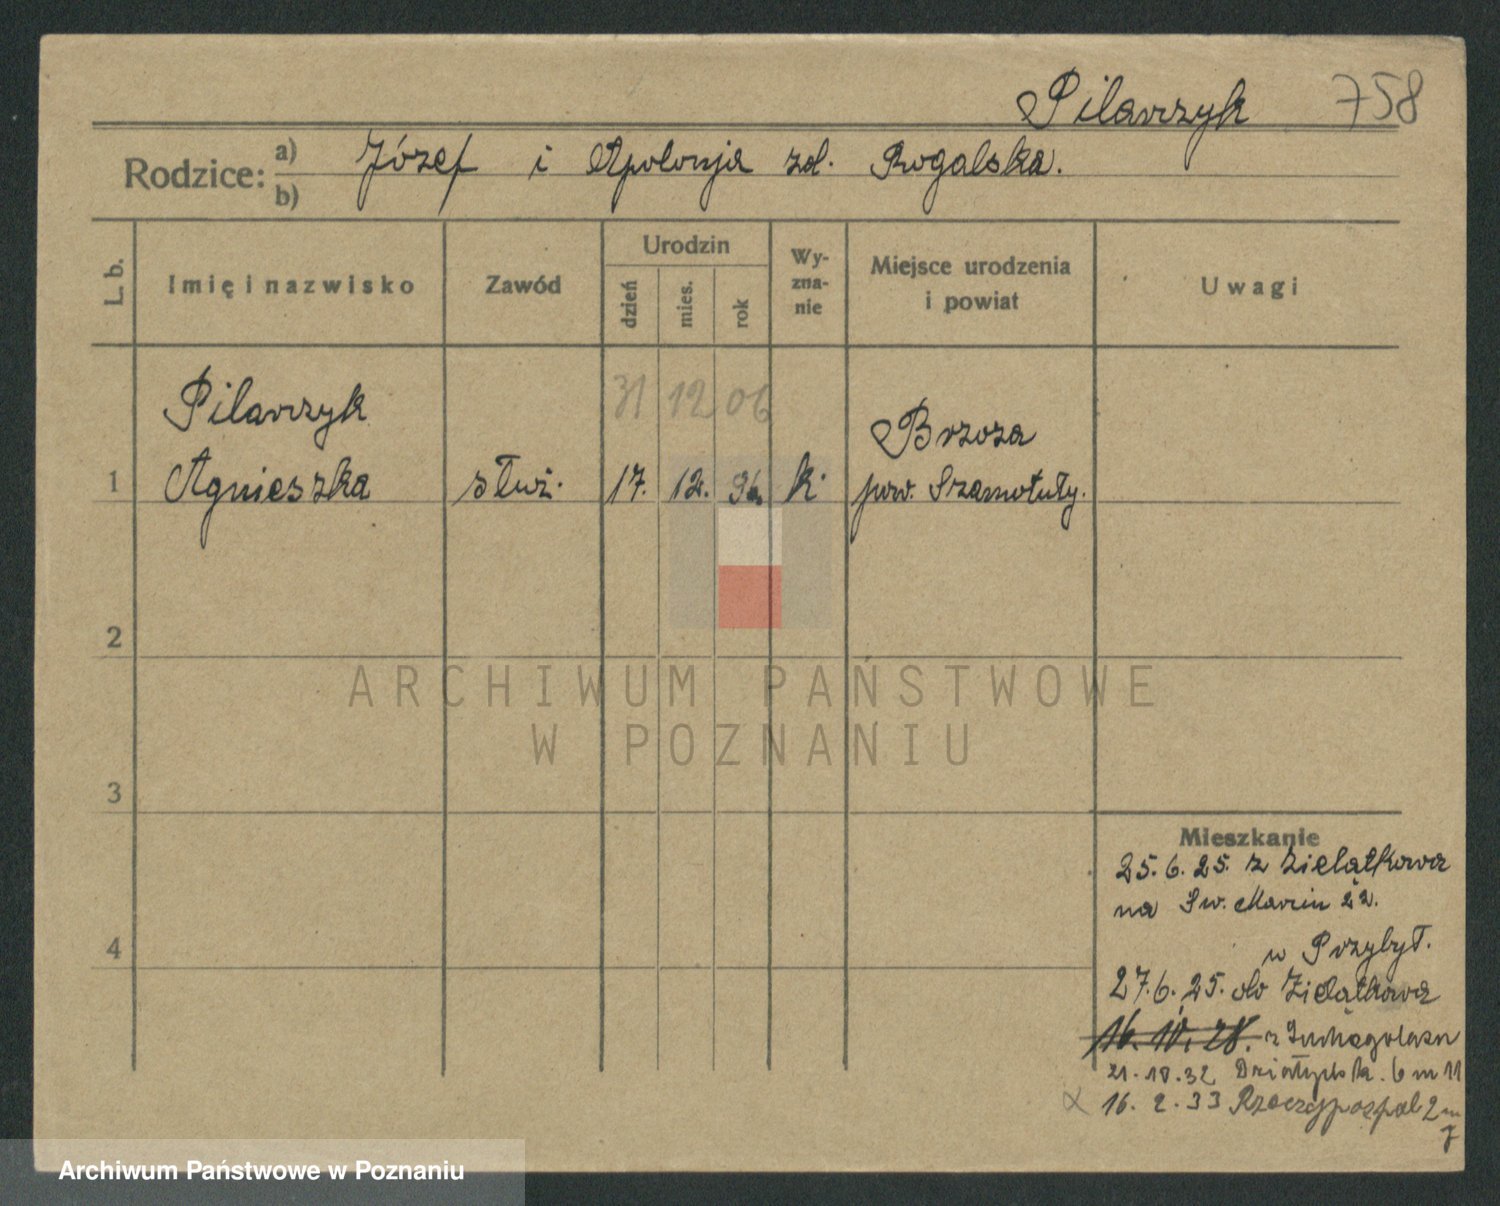 Pilarczyk 758
Rodzice: a) b) Józef i Apolonja zd. Rogalska.
L. b. Imię i nazwisko Zawód Urodzin dzień mies. rok Wy-zna-nie Miejsce urodzenia i powiat Uwagi
31 12 06
Pilarczyk Brzoza
1 Agnieszka służ. 17. 12. k. pow. Szamotuły.
2
ARCHIWUM PAŃSTWOWE
W POZNANIU
3
Mieszkanie
25. 6. 25. z Zielątkowa
na Św. Marcin 22.
w Przybył.
4
27. 6. 25. do Zielątkowa
16. 10. 28. z
21. 10. 32 Działyńsk. 6 m 11
16. 2. 33 Rzeczypospol 2 m
7
Archiwum Państwowe w Poznaniu